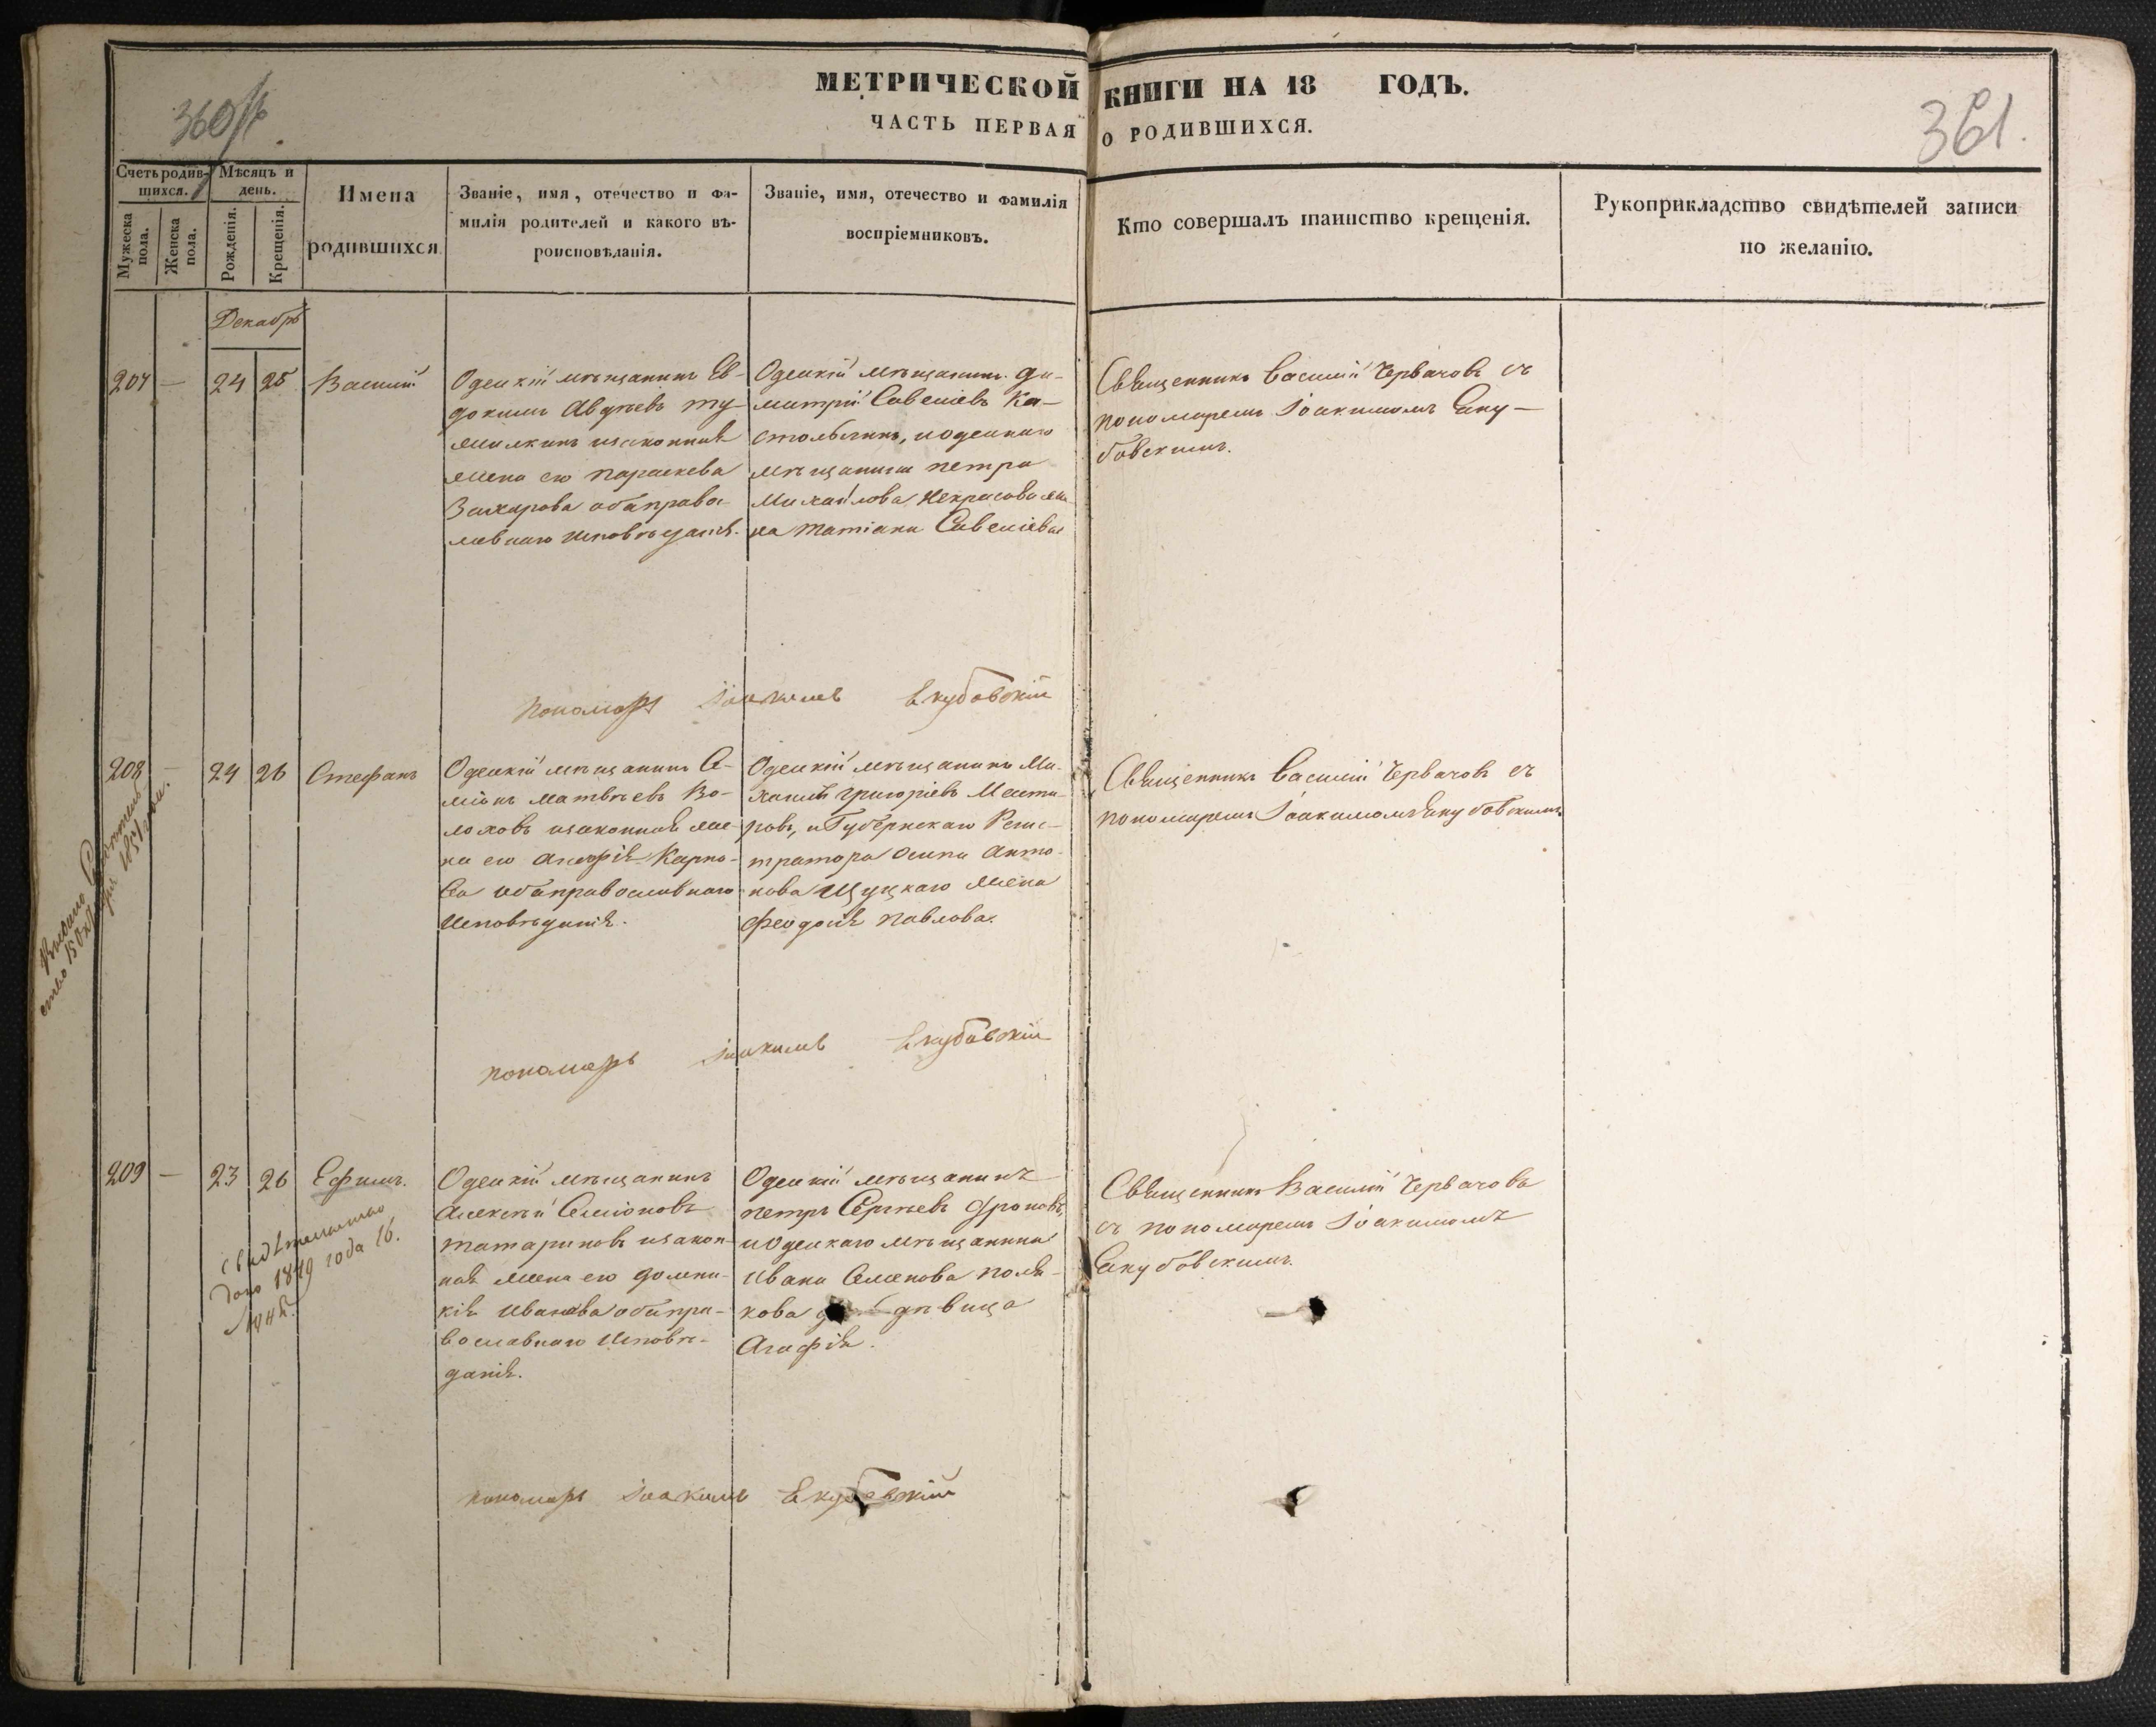 360/об.
МЕТРИЧЕСКОЙ КНИГИ НА 18 ГОДЪ.
361.
ЧАСТЬ ПЕРВАЯ О РОДИВШИХСЯ.
Счетъ родив-
шихся.
Мужеска пола.
Женска пола.
Мѣсяцъ и
день.
Рожденія.
Крещенія.
Имена
родившихся
Званіе, имя, отечество и фа-
милія родителей и какого вѣ-
роисповѣданія.
Званіе, имя, отечество и фамилія
воспріемниковъ.
Кто совершалъ таинство крещенія.
Рукоприкладство свидѣтелей записи
по желанію.
Декабрь
207 — 24 25 Василій
Одескій мѣщанинъ Ев-
докимъ Авдѣевъ Ту-
милкинъ изаконная
жена его Параскева
Захарова оба право-
славнаго исповѣданія.
Одескій мѣщанинъ Ди-
митрій Савеліевъ Ка-
, иодескаго
мѣщанина Петра
Михайлова Некрасова же-
на Татіана Савеліева
Священникъ Василій Червачовъ съ
пономаремъ Іоакимомъ Еку-
бовскимъ.
Пономарь Іоакимъ Екубовскій
208 — 24 26 Стефанъ
Одескій мѣщанинъ Се-
міонъ Матвѣевъ Во-
лоховъ изаконная же-
на его Агафія Карпо-
ва оба православнаго
исповѣданія.
Одескій мѣщанинъ Ми-
хаилъ Григоріевъ
, и Губернскаго Регис-
тратора Осипа Анто-
нова Щуцкаго жена
Феодосія Павлова.
Священникъ Василій Червачовъ съ
пономаремъ Іоакимомъ Екубовскимъ
Пономарь Іоакимъ Екубовскій
209 — 23 26 Ефимъ.
Одескій мѣщанинъ
Алексѣй Семіоновъ
Татариновъ изакон-
ная жена его Домни-
кія Иванова оба пра-
вославнаго исповѣ-
данія.
Одескій мѣщанинъ
Петръ Сергѣевъ Дроновъ,
иодескаго мѣщанина
Ивана Семенова Поля-
кова дѣвица
Агафія.
Священникъ Василій Червачовъ
съ пономаремъ Іоакимомъ
Екубовскимъ.
свидѣтельство
дано 1849 года 16.
Пономарь Іоакимъ Екубовскій